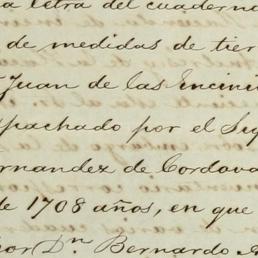 a letra del cuaderno
de medidas de tier
Juan de las Encini
pachado por el Seg
ernandez de Cordova
de 1708 años, en que
or Dn Bernardo